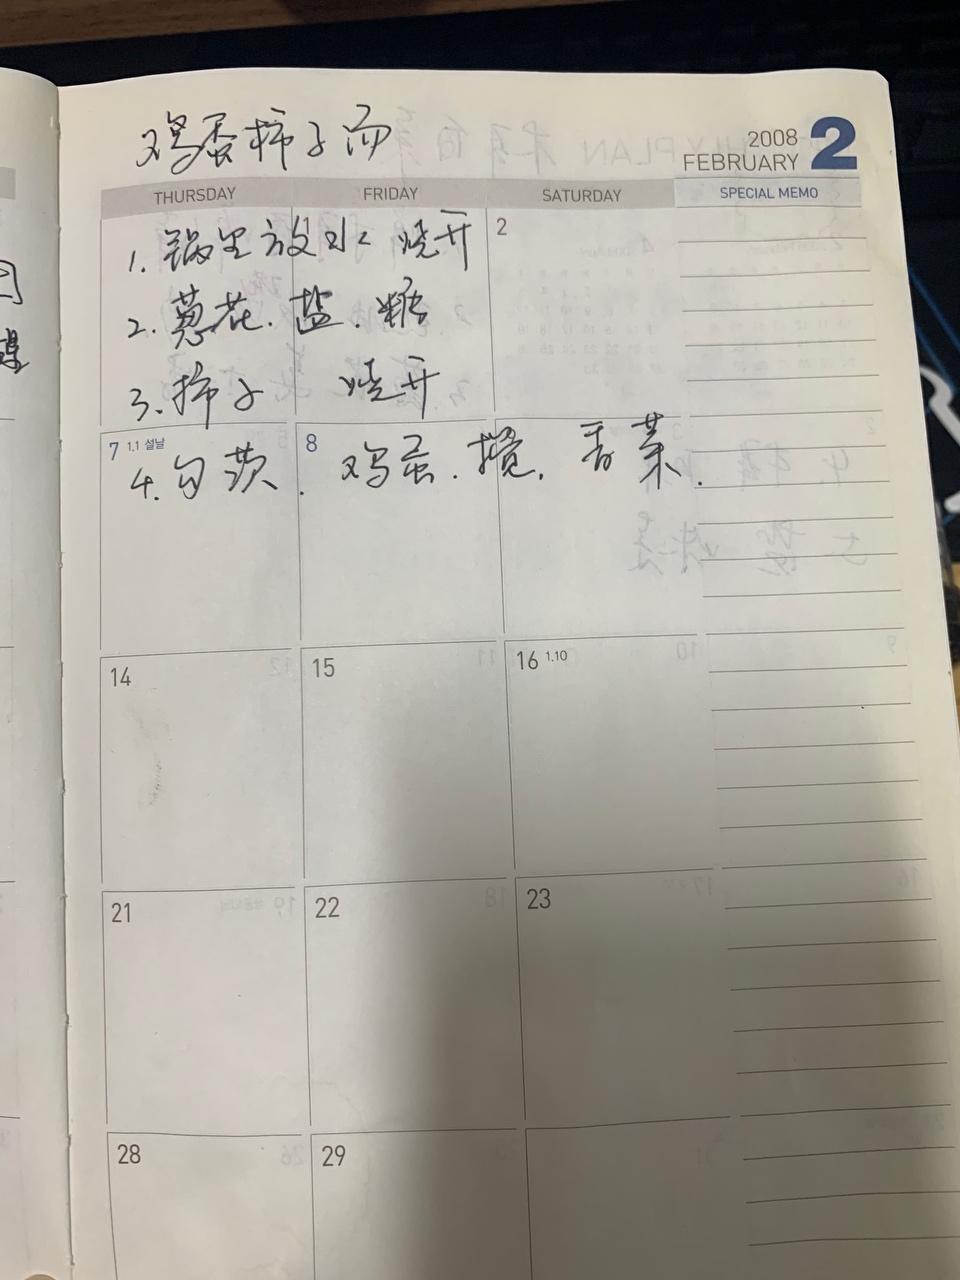 鸡蛋柿子汤
2008 2
FEBRUARY
THURSDAY FRIDAY SATURDAY SPECIAL MEMO
2
1. 锅里放水 烧开
2. 葱花. 盐. 糖
3. 柿子 烧开
7 1.1 설날 8
4. 勾芡. 鸡蛋. 搅. 香菜.
14 15 16 1.10
21 22 23
28 29